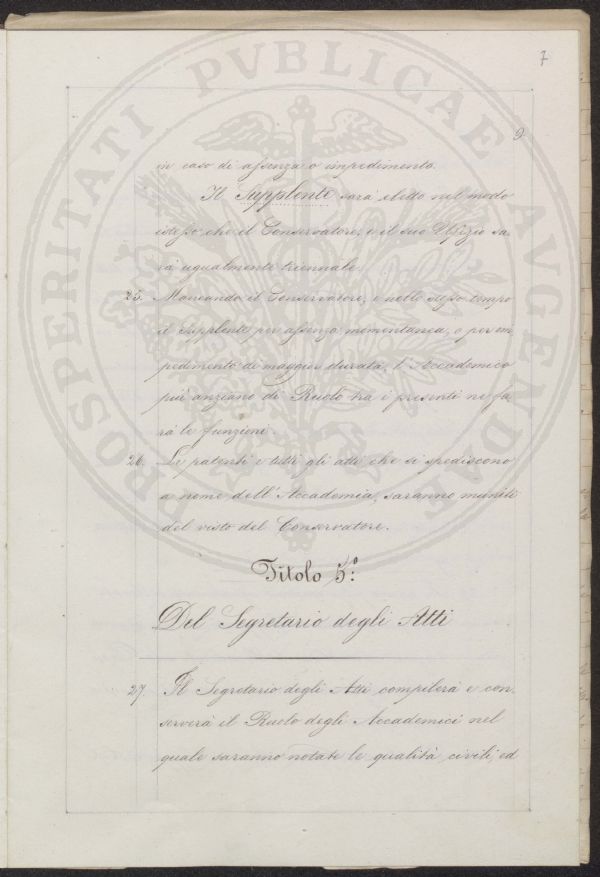 7
9
in caso di assenza o impedimento.
Il Supplente sarà eletto nel modo
istesso che il Conservatore, e il suo Uffizio sa-
rà ugualmente triennale.
25. Mancando il Conservatore, e nello stesso tempo
il Supplente per assenza momentanea, o per im-
pedimento di maggior durata, l'Accademico
più anziano di Ruolo tra i presenti ne fa-
rà le funzioni.
26. Le patenti e tutti gli atti che si spediscono
a nome dell'Accademia, saranno muniti
del visto del Conservatore.
Titolo 5º:
Del Segretario degli Atti
27. Il Segretario degli Atti compilerà e con-
serverà il Ruolo degli Accademici nel
quale saranno notate le qualità civili, ed
PROSPERITATI PVBLICAE AVGENDAE